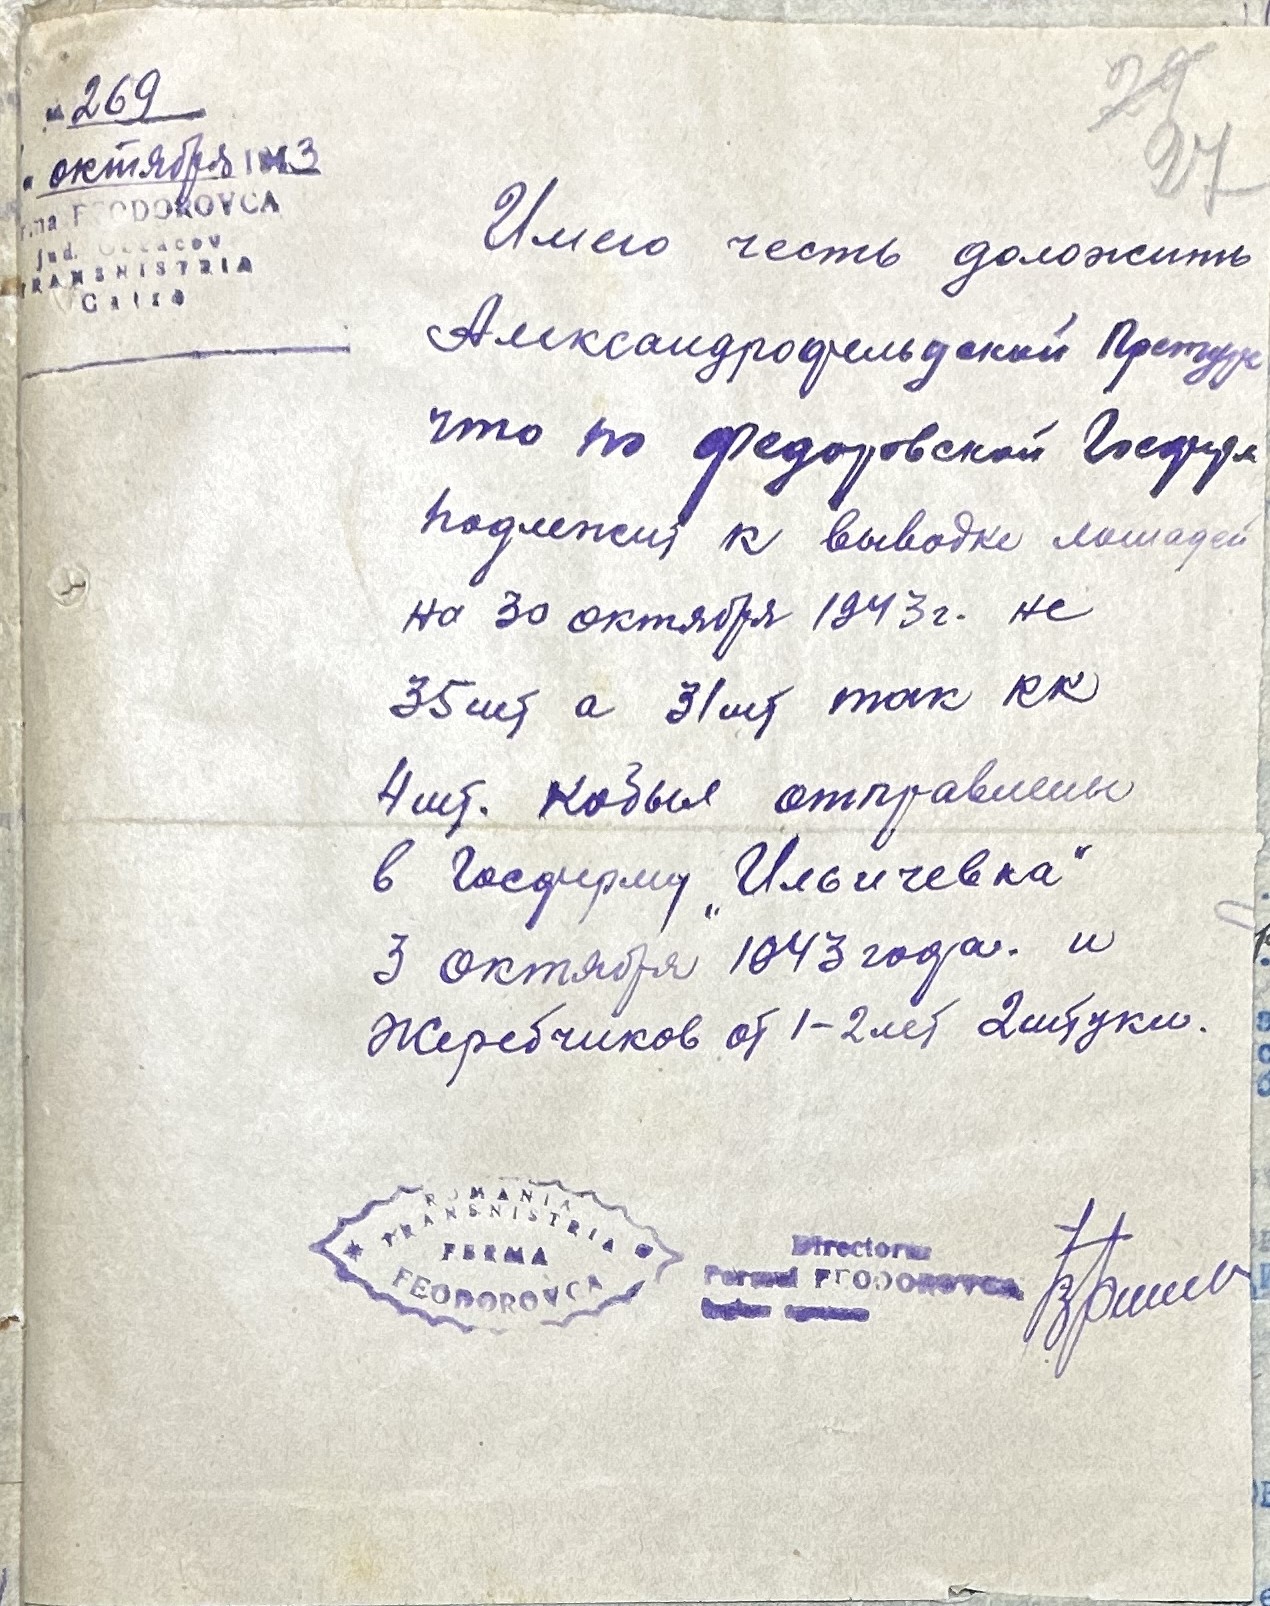 269
29
27
октября 1943
FEODOROVCA
jud. Oceacov
TRANSNISTRIA
Catre
Имею честь доложить
Александрофельдской Претуре
что по Федоровской Госферме
подлежит к выводке лошадей
на 30 октября 1943 г. не
35 шт а 31 шт так кк
4 шт. кобыл отправлены
в Госферму „Ильичевка"
3 октября 1943 года. и
Жеребчиков от 1-2 лет 2 штуки.
ROMANIA
TRANSNISTRIA
FERMA
FEODOROVCA
Directorul
Fermei FEODOROVCA